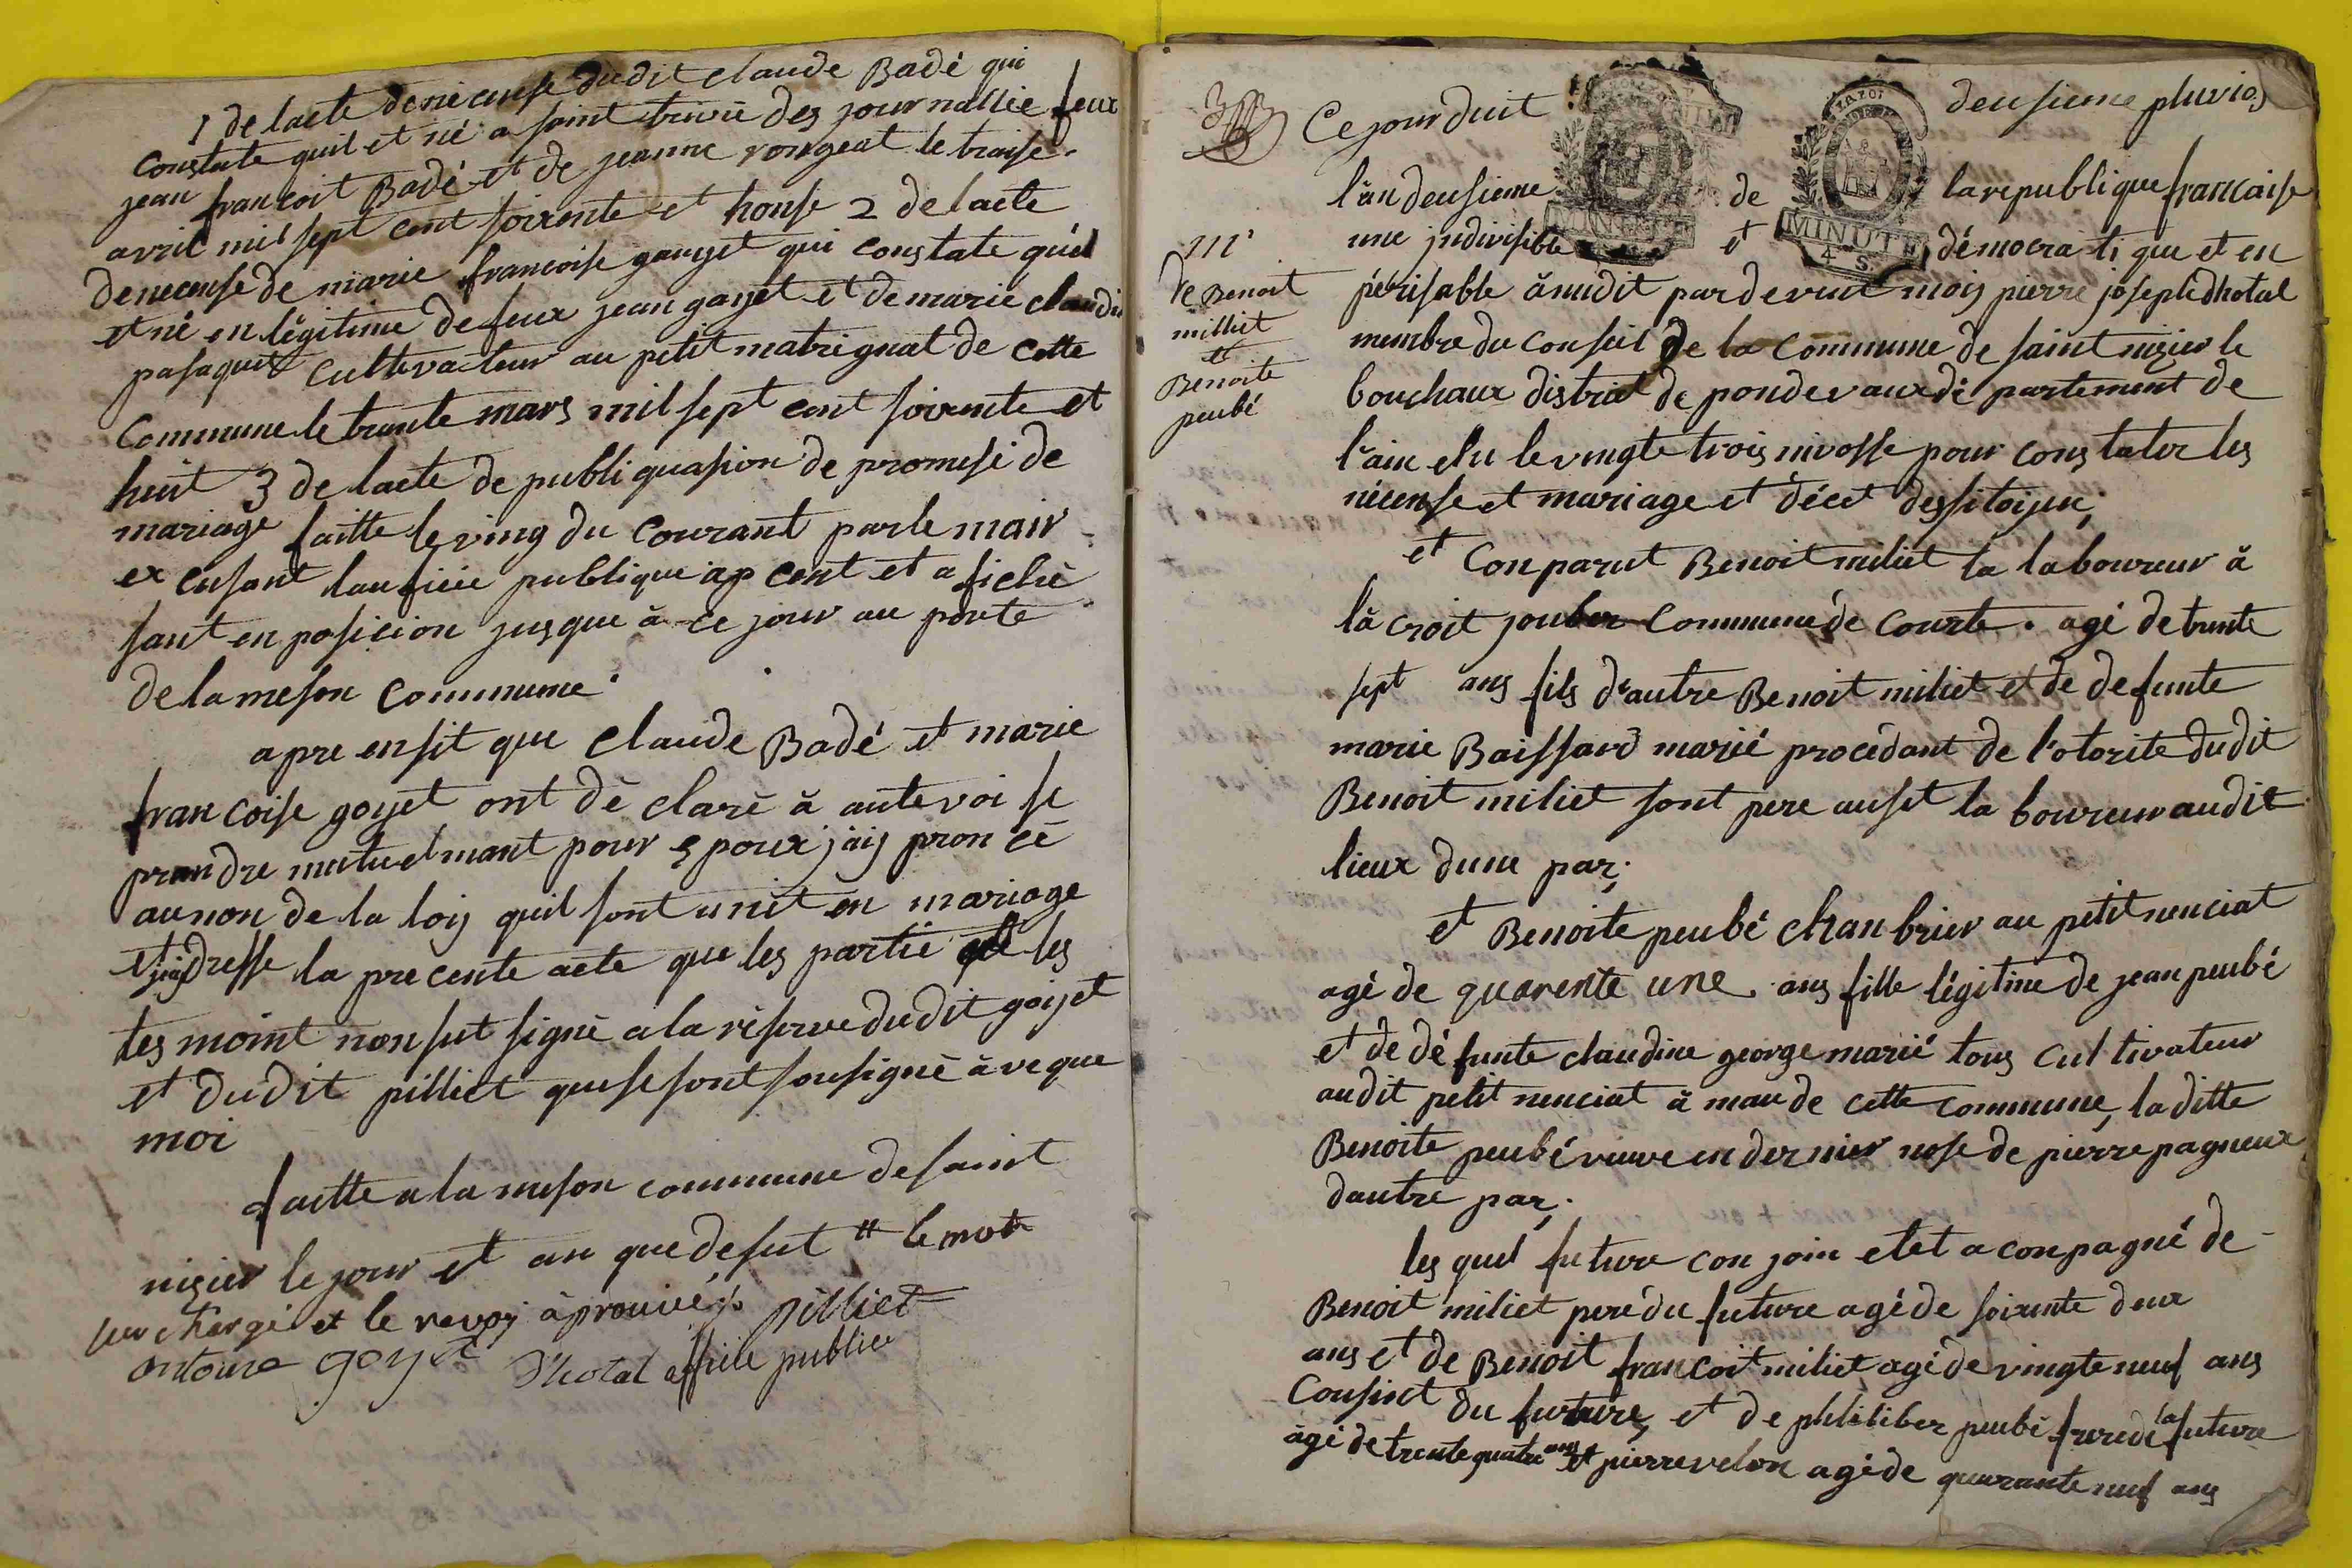 1 de lacte denecense dudit claude Badé qui
constate quil et né a saint trivié des journallie feux
jean francoit Badé et de jeanne rongeat le traise
avril mil sept cent soixente et honse 2 de lacte
denecense de marie francoise gauyet qui constate quel
et né en légitime de feux jean gayet et de marie claudi
pasaquet cultevateur au petit matrignat de cette
Commune le trante mars mil sept cent soixente et
huit 3 de lacte de publiquasion de promesi de
mariage faitte le ving du Courant par le mair
ex cusant laufisie publique ap cent et a fiché
sant en posicion jusque à ce jour au porte
de la meson Commune
apre ensit que claude Badé et marie
francoise goyet ont dè clarè à aute voi se
prandre mutuelmant pour epoux jaij pron cè
au non de la loij quil sont unit en mariage
et jaij dresse la precente acte que les partie et les
tes moint non sut signè a la réserve dudit goijet
et dudit pilliet que se sont sousignè àveque
moi
faitte a la meson commune de saint
nizier le jour et an que desut # le mots
sur chargé et le revoij àprouivé % pilliet
antoine goyet D'hotal affisie publice
Ce jour duit deusieme pluvios
l'an deusieme de la republique francaise
une jndivisible et démocrati que et en
MINUTE
MINUTE
4 S.
périsable à midit par devent moij pierre joseph dhotal
membre du Conseil de la Commune de saint nizier le
bouchaux district de pondevaux dé partement de
l'ain elu le vingte trois nivosse pour constater les
nécense et mariage et décet dessitoijen
111e
de Benoit
milliet
et
Benoite
peubé
et Conparut Benoit miliet la laboureur à
là croit jouber Commune de Courte. agé de trente
sept ans fils d'autre Benoit miliet et de defunte
marie Baissard marié procédant de l'otorite dudit
Benoit miliet sont pere auset la boureur audit
lieux dune par;
et Benoite peubé chanbrier au petit nenciat
agé de quarente une ans fille légitime de jean peubé
et de dé funte claudine george marié tous cul tivateur
audit petit nenciat à mau de cette commune, laditte
Benoite peubé veuve en dernier nose de pierre pagneux
dautre par;
les quel future con join etet a conpagné de
Benoit miliet peré du future agé de soixante deux
ans et de Benoit francoit miliet agé de vingte neuf ans
Cousint du future et de phliliber peubé frere de la future
àgé de trente quatre ans et pierre velon agé de quarante neuf ans